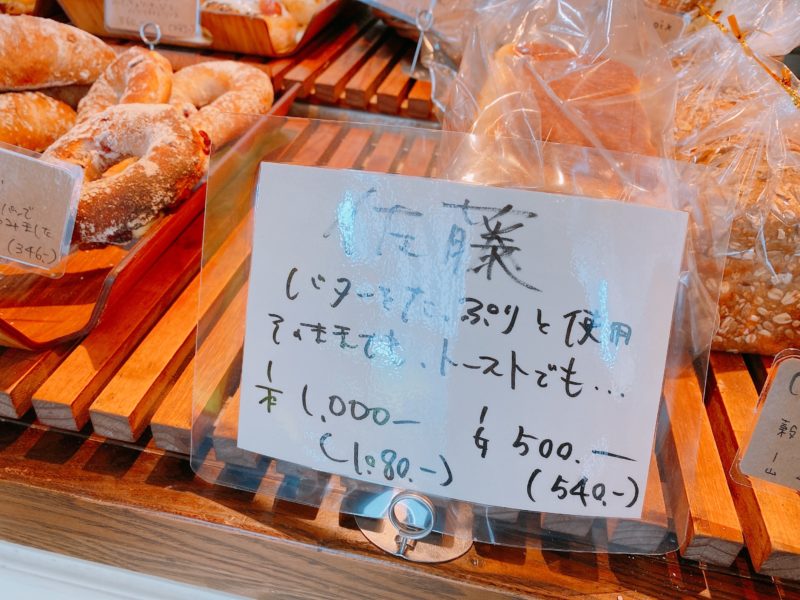 佐藤
バターをたっぷりと使用
そのままでも、トーストでも…
1/本 1,000- 1/斤 500.-
(1,080.-) (540.-)
(346.-)